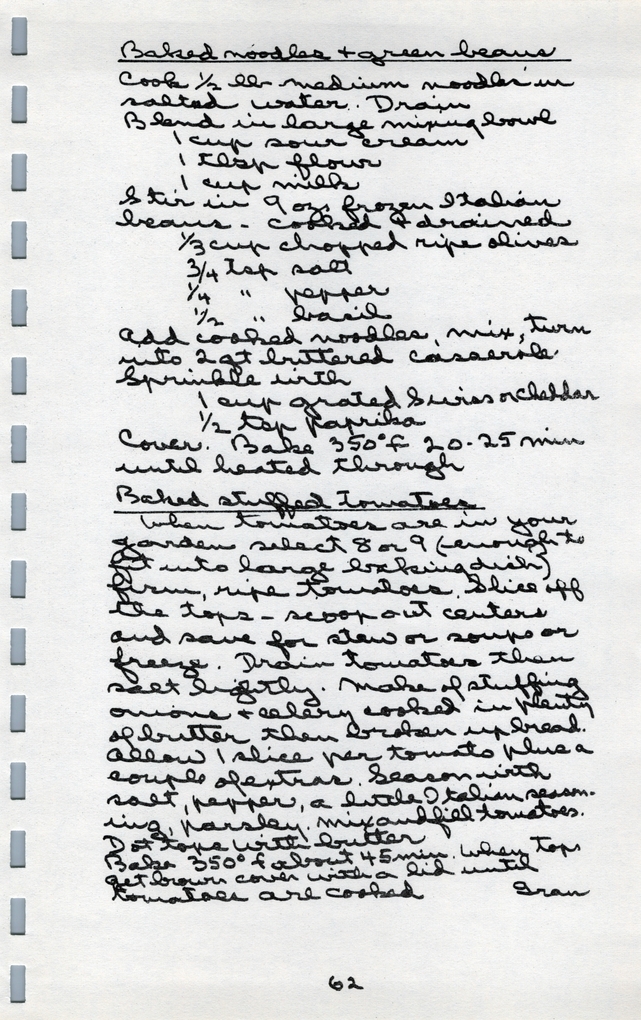 Baked noodles + green beans
Cook 1/2 lb medium noodles in
salted water. Drain
Blend in large mixing bowl
1 cup sour cream
1 tbsp flour
1 cup milk
Stir in 9 oz. frozen Italian
beans - cooked + drained
1/3 cup chopped ripe olives
3/4 tsp salt
1/4 " pepper
1/2 " basil
Add cooked noodles, mix, turn
into 2 qt buttered casserole.
Sprinkle with
1 cup grated Swiss or cheddar
1/2 tsp paprika
Cover. Bake 350° F 20-25 min
until heated through
Baked stuffed tomatoes
When tomatoes are in your
garden select 8 or 9 (enough to
fit into large baking dish)
firm, ripe tomatoes. Slice off
the tops - scoop out centers
and save for stew or soups or
freeze. Drain tomatoes then
salt lightly. Make of stuffing
onions + celery cooked in plenty
of butter then broken up bread.
Allow 1 slice per tomato plus a
couple of extras. Season with
salt, pepper, a little Italian season-
ing, parsley. mix and fill tomatoes.
Dot tops with butter
Bake 350° F about 45 min. When tops
get brown cover with a lid until
tomatoes are cooked Gran
62